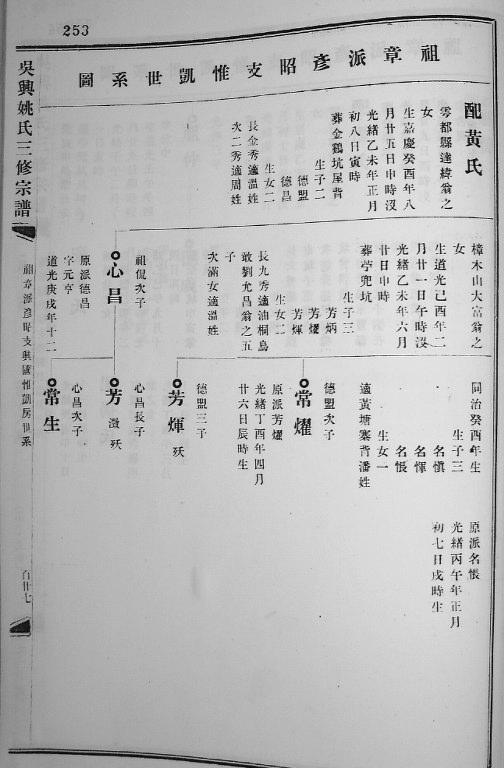 253
祖章派彥昭支惟凱世系圖
配黃氏
雩都縣達緯翁之
女
生嘉慶癸酉年八
月廿五日申時沒
光緒乙未年正月
初八日寅時
葬金鷄坑屋背
生子二
德盟
德昌
生女二
長金秀適溫姓
次二秀適周姓
樟木山大富翁之
女
生道光己酉年二
月廿一日午時沒
光緒乙未年六月
廿日申時
葬葶兜坑
生子三
芳炳
芳燿
芳輝
生女二
長九秀適油桐烏
敢劉尤昌翁之五
子
次滿女適溫姓
心昌
祖侃次子
原派德昌
字元亨
道光庚戌年十二
同治癸酉年生
生子三
名愼
名惲
名悵
生女一
適黃塘寨背潘姓
常燿
德盟次子
原派芳燿
光緒丁酉年四月
廿六日辰時生
芳輝
德盟三子
殀
芳
心昌長子
殀
常生
心昌次子
原派名悵
光緒丙午年正月
初七日戌時生
吳興姚氏三修宗譜
祖章派彥昭支興國惟凱房世系
百廿七